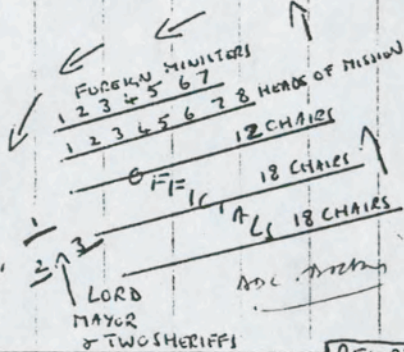 FOREIGN MINISTERS
1 2 3 4 5 6 7
1 2 3 4 5 6 7 8 HEADS OF MISSION
12 CHAIRS
OFFICIALS 18 CHAIRS
18 CHAIRS
1
2 3
LORD
MAYOR
& TWO SHERIFFS
ADC